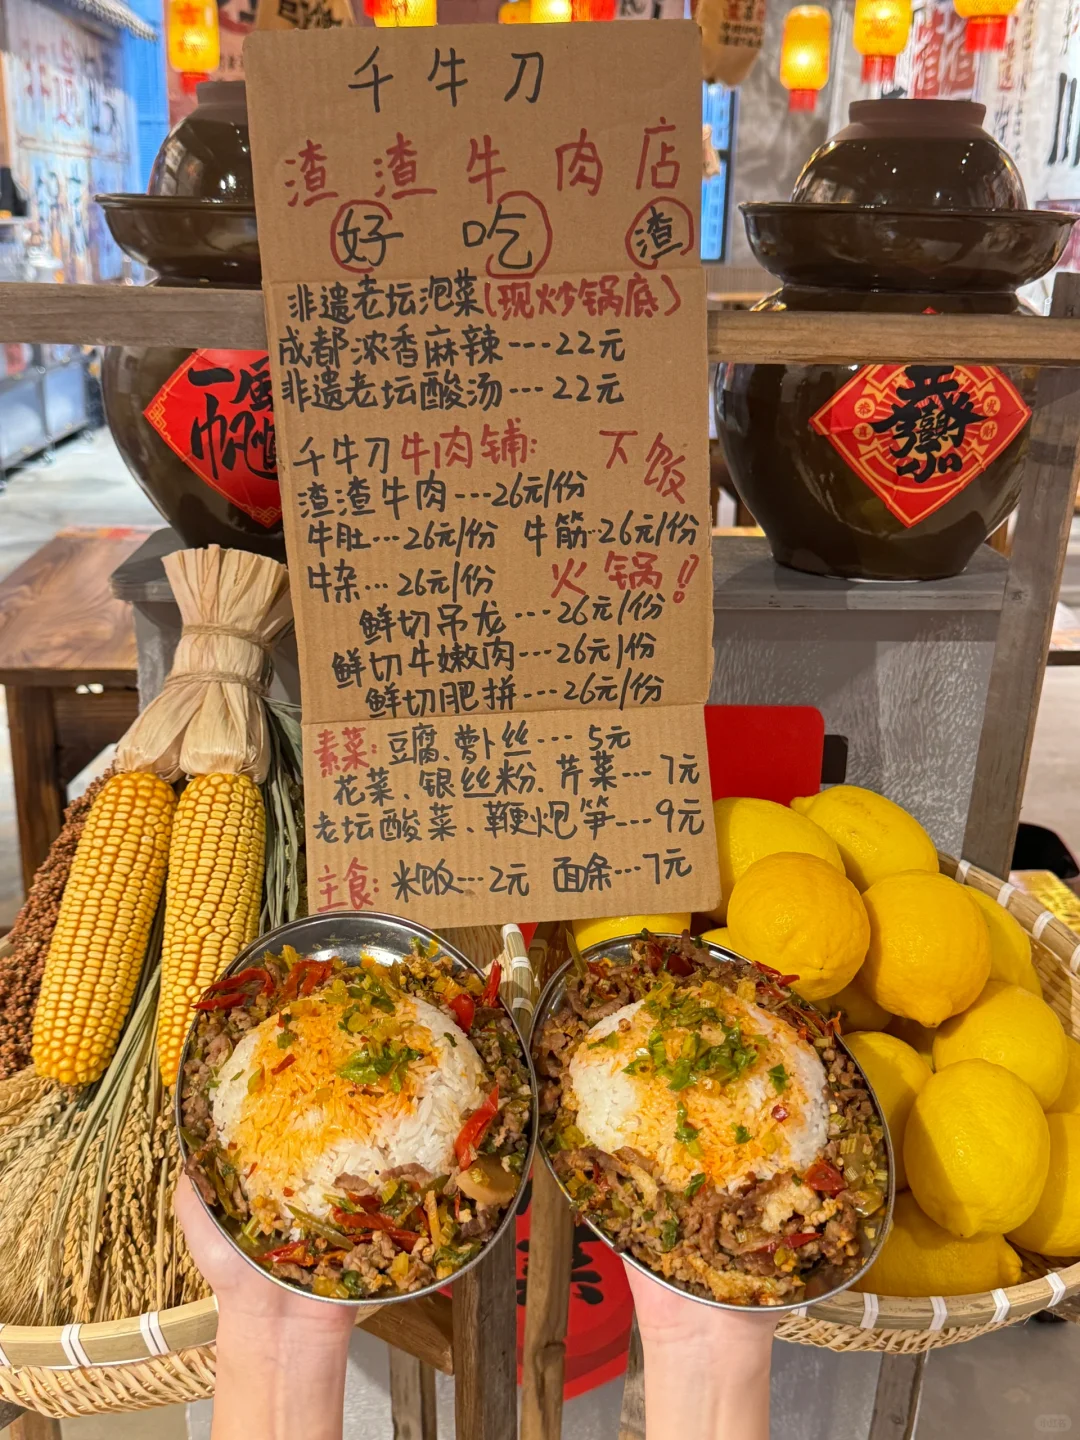 千牛刀
渣渣牛肉店
好吃渣
非遗老坛泡菜(现炒锅底)
成都浓香麻辣---22元
非遗老坛酸汤---22元
千牛刀牛肉铺:
下饭
渣渣牛肉---26元/份
牛肚---26元/份 牛筋--26元/份
牛杂...26元/份
火锅!!
鲜切吊龙---26元/份
鲜切牛嫩肉---26元/份
鲜切肥拼---26元/份
素菜:豆腐、萝卜丝---5元
花菜、银丝粉、芹菜---7元
老坛酸菜、鞭炮笋---9元
主食:米饭---2元 面条---7元